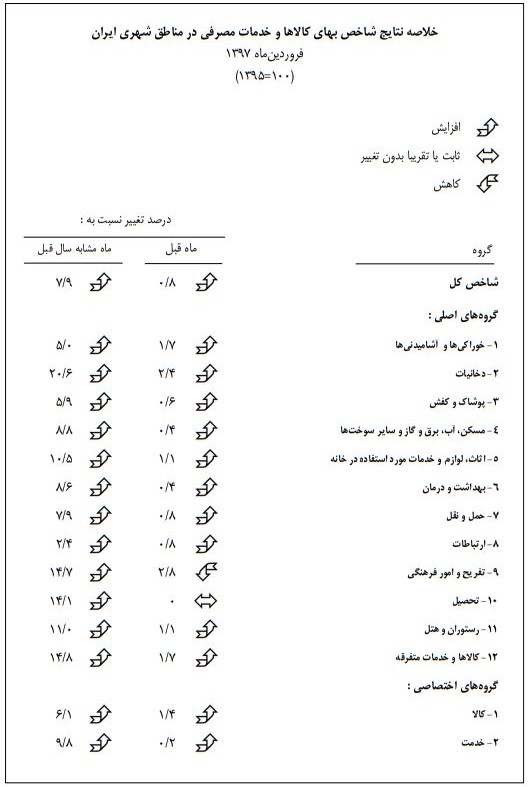 خلاصه نتایج شاخص بهای کالاها و خدمات مصرفی در مناطق شهری ایران
فروردین‌ماه ۱۳۹۷
(۱۳۹۵=۱۰۰)
افزایش
ثابت یا تقریبا بدون تغییر
کاهش
درصد تغییر نسبت به :
گروه ماه قبل ماه مشابه سال قبل
شاخص کل ۰/۸ ۷/۹
گروه‌های اصلی :
۱- خوراکی‌ها و آشامیدنی‌ها ۱/۷ ۵/۰
۲- دخانیات ۲/۴ ۲۰/۶
۳- پوشاک و کفش ۰/۶ ۵/۹
۴- مسکن، آب، برق و گاز و سایر سوخت‌ها ۰/۴ ۸/۸
۵- اثاث، لوازم و خدمات مورد استفاده در خانه ۱/۱ ۱۰/۵
۶- بهداشت و درمان ۰/۴ ۸/۶
۷- حمل و نقل ۰/۸ ۷/۹
۸- ارتباطات ۰/۸ ۲/۴
۹- تفریح و امور فرهنگی ۲/۸ ۱۴/۷
۱۰- تحصیل ۰ ۱۴/۱
۱۱- رستوران و هتل ۱/۱ ۱۱/۰
۱۲- کالاها و خدمات متفرقه ۱/۷ ۱۴/۸
گروه‌های اختصاصی :
۱- کالا ۱/۴ ۶/۱
۲- خدمت ۰/۲ ۹/۸